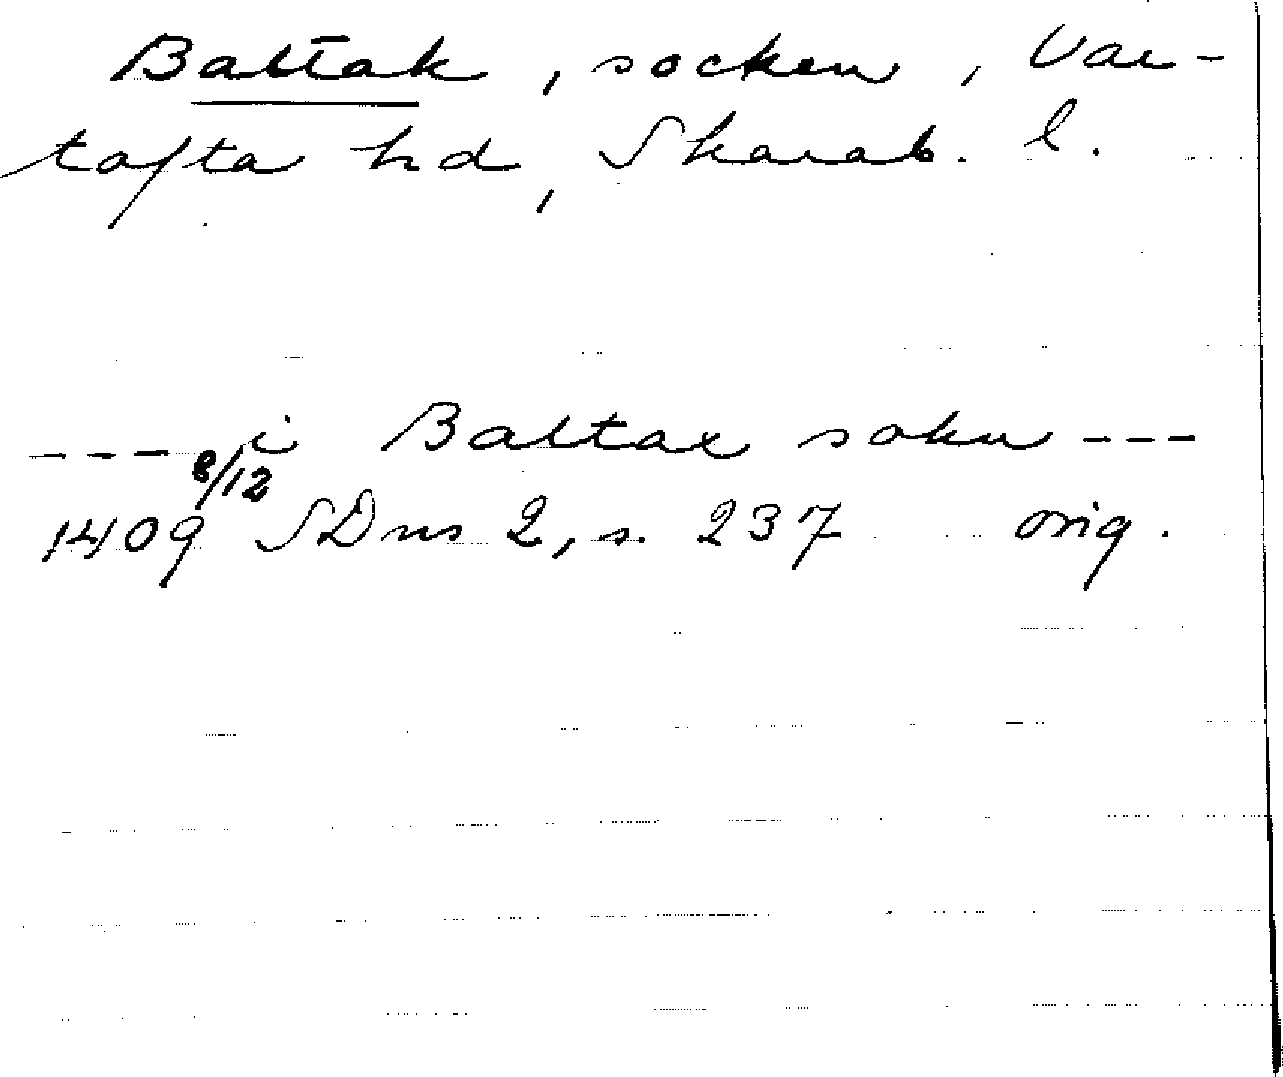 Baltak, socken, Var-
tofta hd, Skarab. l.
---- i Baltax sokn ---
1409 8/12 SDns 2, s. 237 orig.